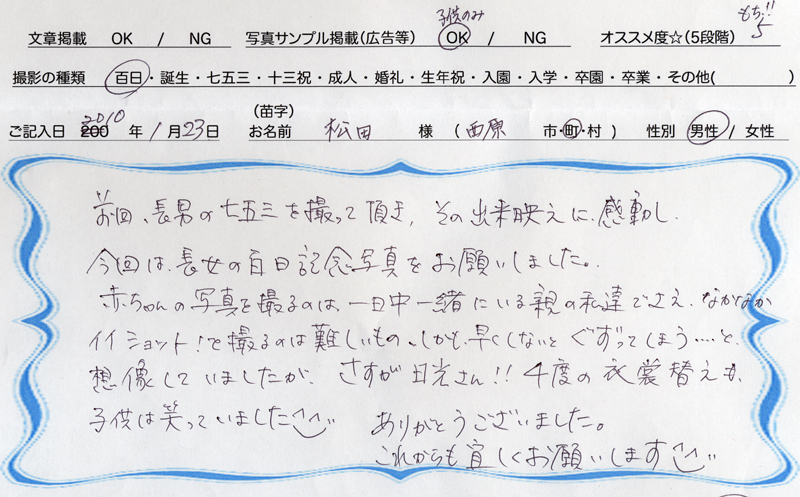 子供のみ
もち!!
文章掲載 OK / NG 写真サンプル掲載(広告等) OK / NG オススメ度☆(5段階) 5
撮影の種類 百日・誕生・七五三・十三祝・成人・婚礼・生年祝・入園・入学・卒園・卒業・その他( )
(苗字)
ご記入日 200 2010 年 1月23日 お名前 松田 様 ( 西原 市・町・村 ) 性別 男性 / 女性
前回、長男の七五三を撮って頂き、その出来映えに感動し、
今回は、長女の百日記念写真をお願いしました。
赤ちゃんの写真を撮るのは、一日中一緒にいる親の私達でさえ、なかなか
イイショット!を撮るのは難しいもの、しかも、早くしないとぐずってしまう……と、
想像していましたが、さすが日光さん!!4度の衣裳替えも、
子供は笑っていました^^ ありがとうございました。
これからも宜しくお願いします^^